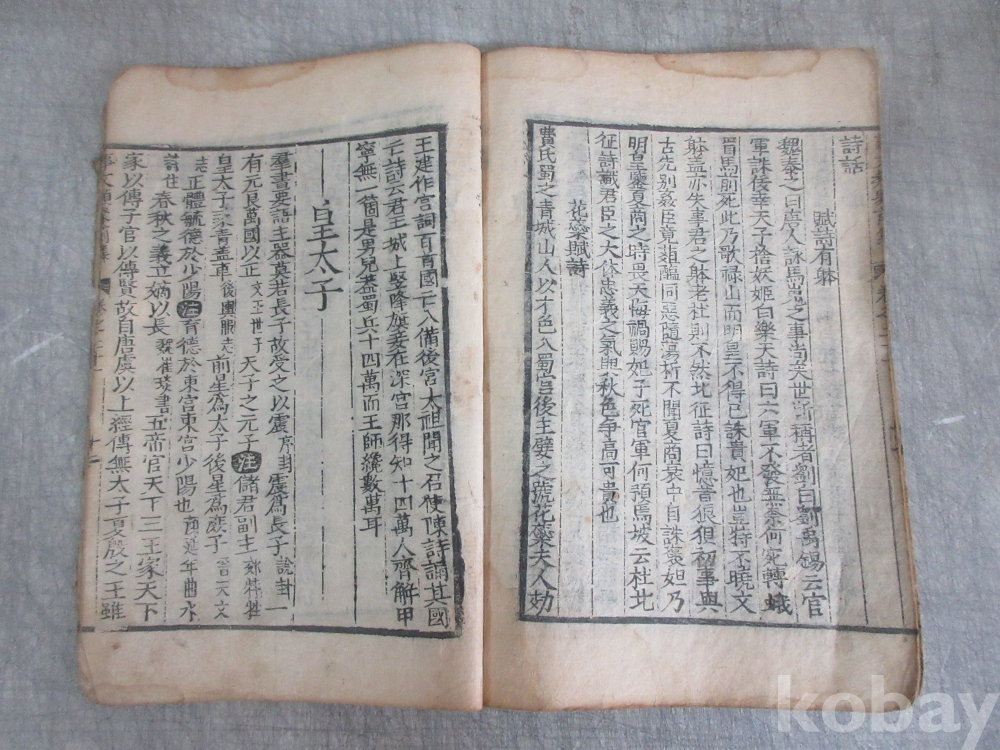 詩話
賦詩有躰
魏泰之曰唐人詠馬嵬之事尚矣世所稱者劉曰劉禹錫云官
軍誅佞幸天子捨妖姬白樂天詩曰六軍不發無奈何宛轉蛾
眉馬前死此乃歌禄山而明皇不得已誅貴妃也豈特不曉文
躰盖亦失事君之躰老杜則不然北征詩曰憶昔狼狽初事與
古先別姦臣竟葅醢同惡隨蕩析不聞夏商衰中自誅褒妲乃
明皇鑒夏商之時畏天悔禍賜妃子死官軍何預馬坡云杜北
征詩識君臣之大体忠義之氣與秋色争高可貴也
花蘂賦詩
費氏蜀之青城山人以才色入蜀宮後主嬖之號花蘂夫人効
王建作宮詞百首國亡入備後宮太祖聞之召使陳詩誦其國
亡詩云君王城上竪降旗妾在深宮那得知十四萬人齊解甲
寧無一箇是男兒盖蜀兵十四萬而王師纔數萬耳
皇太子
羣書要語主器莫若長子故受之以震序卦震爲長子說卦一
有元良萬國以正文王世子天子之元子注儲君副主郊特牲
皇太子朱青盖車後輿服志前星爲太子後星爲庶子晉天文
志正體毓德於少陽注育德於東宮東宮少陽也顔延年曲水
詩注春秋之義立嫡以長魏崔琰書五帝官天下三王家天下
家以傳子官以傳賢故自唐虞以上經傳無太子夏殷之王雖
kobay